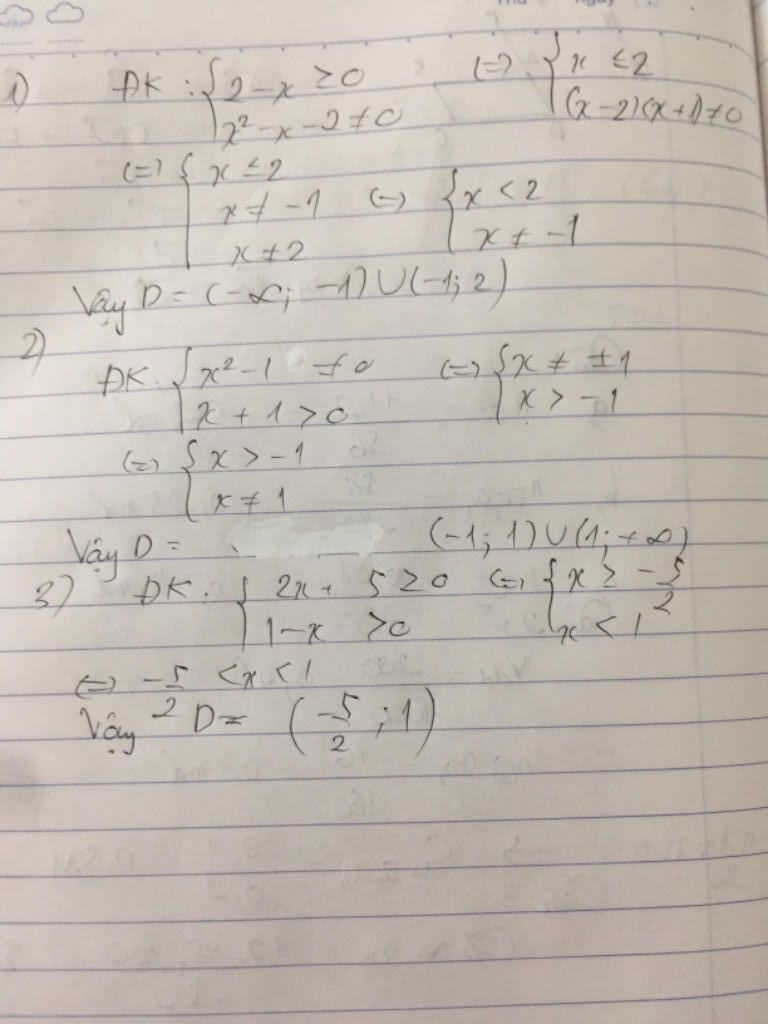 1) ĐK: { 2 - x ≥ 0 (=) { x ≤ 2
x² - x - 2 ≠ 0 (x - 2)(x + 1) ≠ 0
(=) { x ≤ 2
x ≠ -1 (=) { x < 2
x ≠ 2 x ≠ -1
Vậy D = (-∞; -1) ∪ (-1; 2)
2)
ĐK: { x² - 1 ≠ 0 (=) { x ≠ ±1
x + 1 > 0 x > -1
(=) { x > -1
x ≠ 1
Vậy D = (-1; 1) ∪ (1; +∞)
3) ĐK: { 2x + 5 ≥ 0 (=) { x ≥ -5/2
1 - x > 0 x < 1
(=) -5/2 < x < 1
Vậy D = (-5/2; 1)